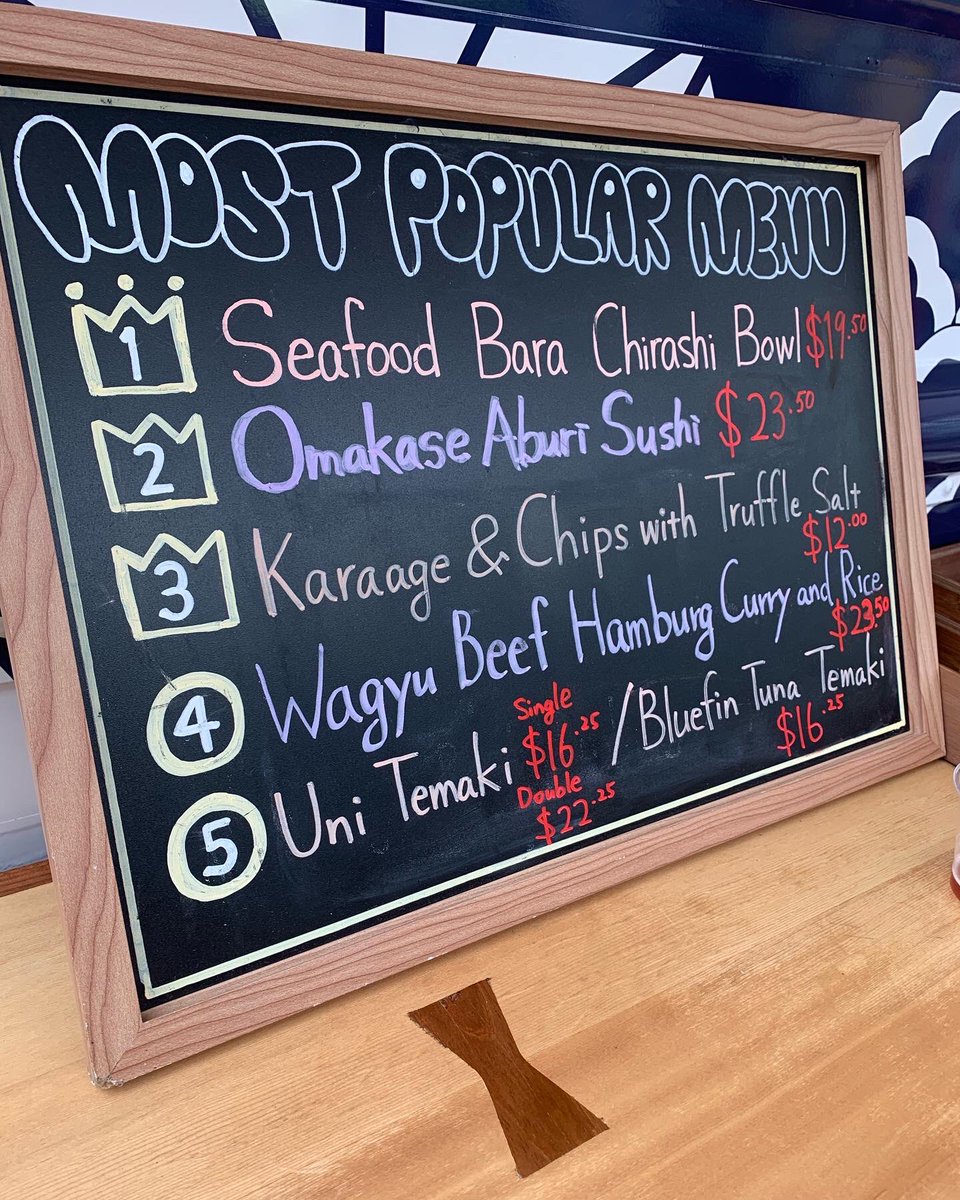 MOST POPULAR MENU
1 Seafood Bara Chirashi Bowl $19.50
2 Omakase Aburi Sushi $23.50
3 Karaage & Chips with Truffle Salt
$12.00
4 Wagyu Beef Hamburg Curry and Rice
$23.50
5 Uni Temaki Single $16.25 / Bluefin Tuna Temaki
Double $22.25 $16.25